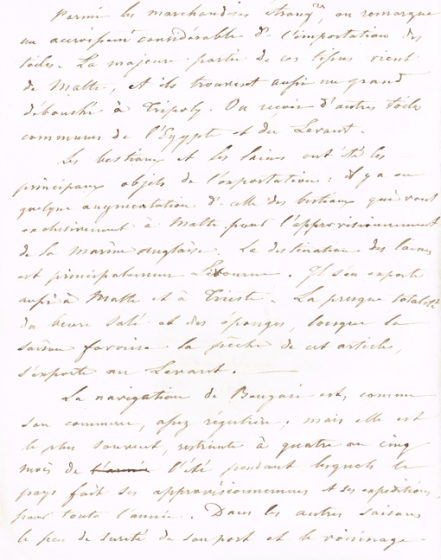 Parmi les marchandises étrang.res, on remarque
un accroissement considérable de l'importation des
toiles. La majeure partie de ces tissus vient
de Malte, et ils trouvent aussi un grand
débouché à Tripoly. On reçoit d'autres toiles
communes de l'Egypte et du Levant.
Les bestiaux et les laines ont été les
principaux objets de l'exportation: il y a eu
quelque augmentation d' celle des bestiaux qui vont
exclusivement à Malte pour l'approvisionnement
de la marine anglaise. La destination des laines
est principalement Livourne. Il s'en exporte
aussi à Malte et à Trieste. La presque totalité
du beurre salé et des éponges, lorsque la
saison favorise la pêche de cet article,
s'exporte au Levant.
La navigation de Bengazi est, comme
son commerce, assez régulière: mais elle est
le plus souvent, restreinte à quatre ou cinq
mois de l'été pendant lesquels le
pays fait ses approvisionnemens et ses expéditions
pour toute l'année. Dans les autres saisons
le peu de sureté de son port et le voisinage